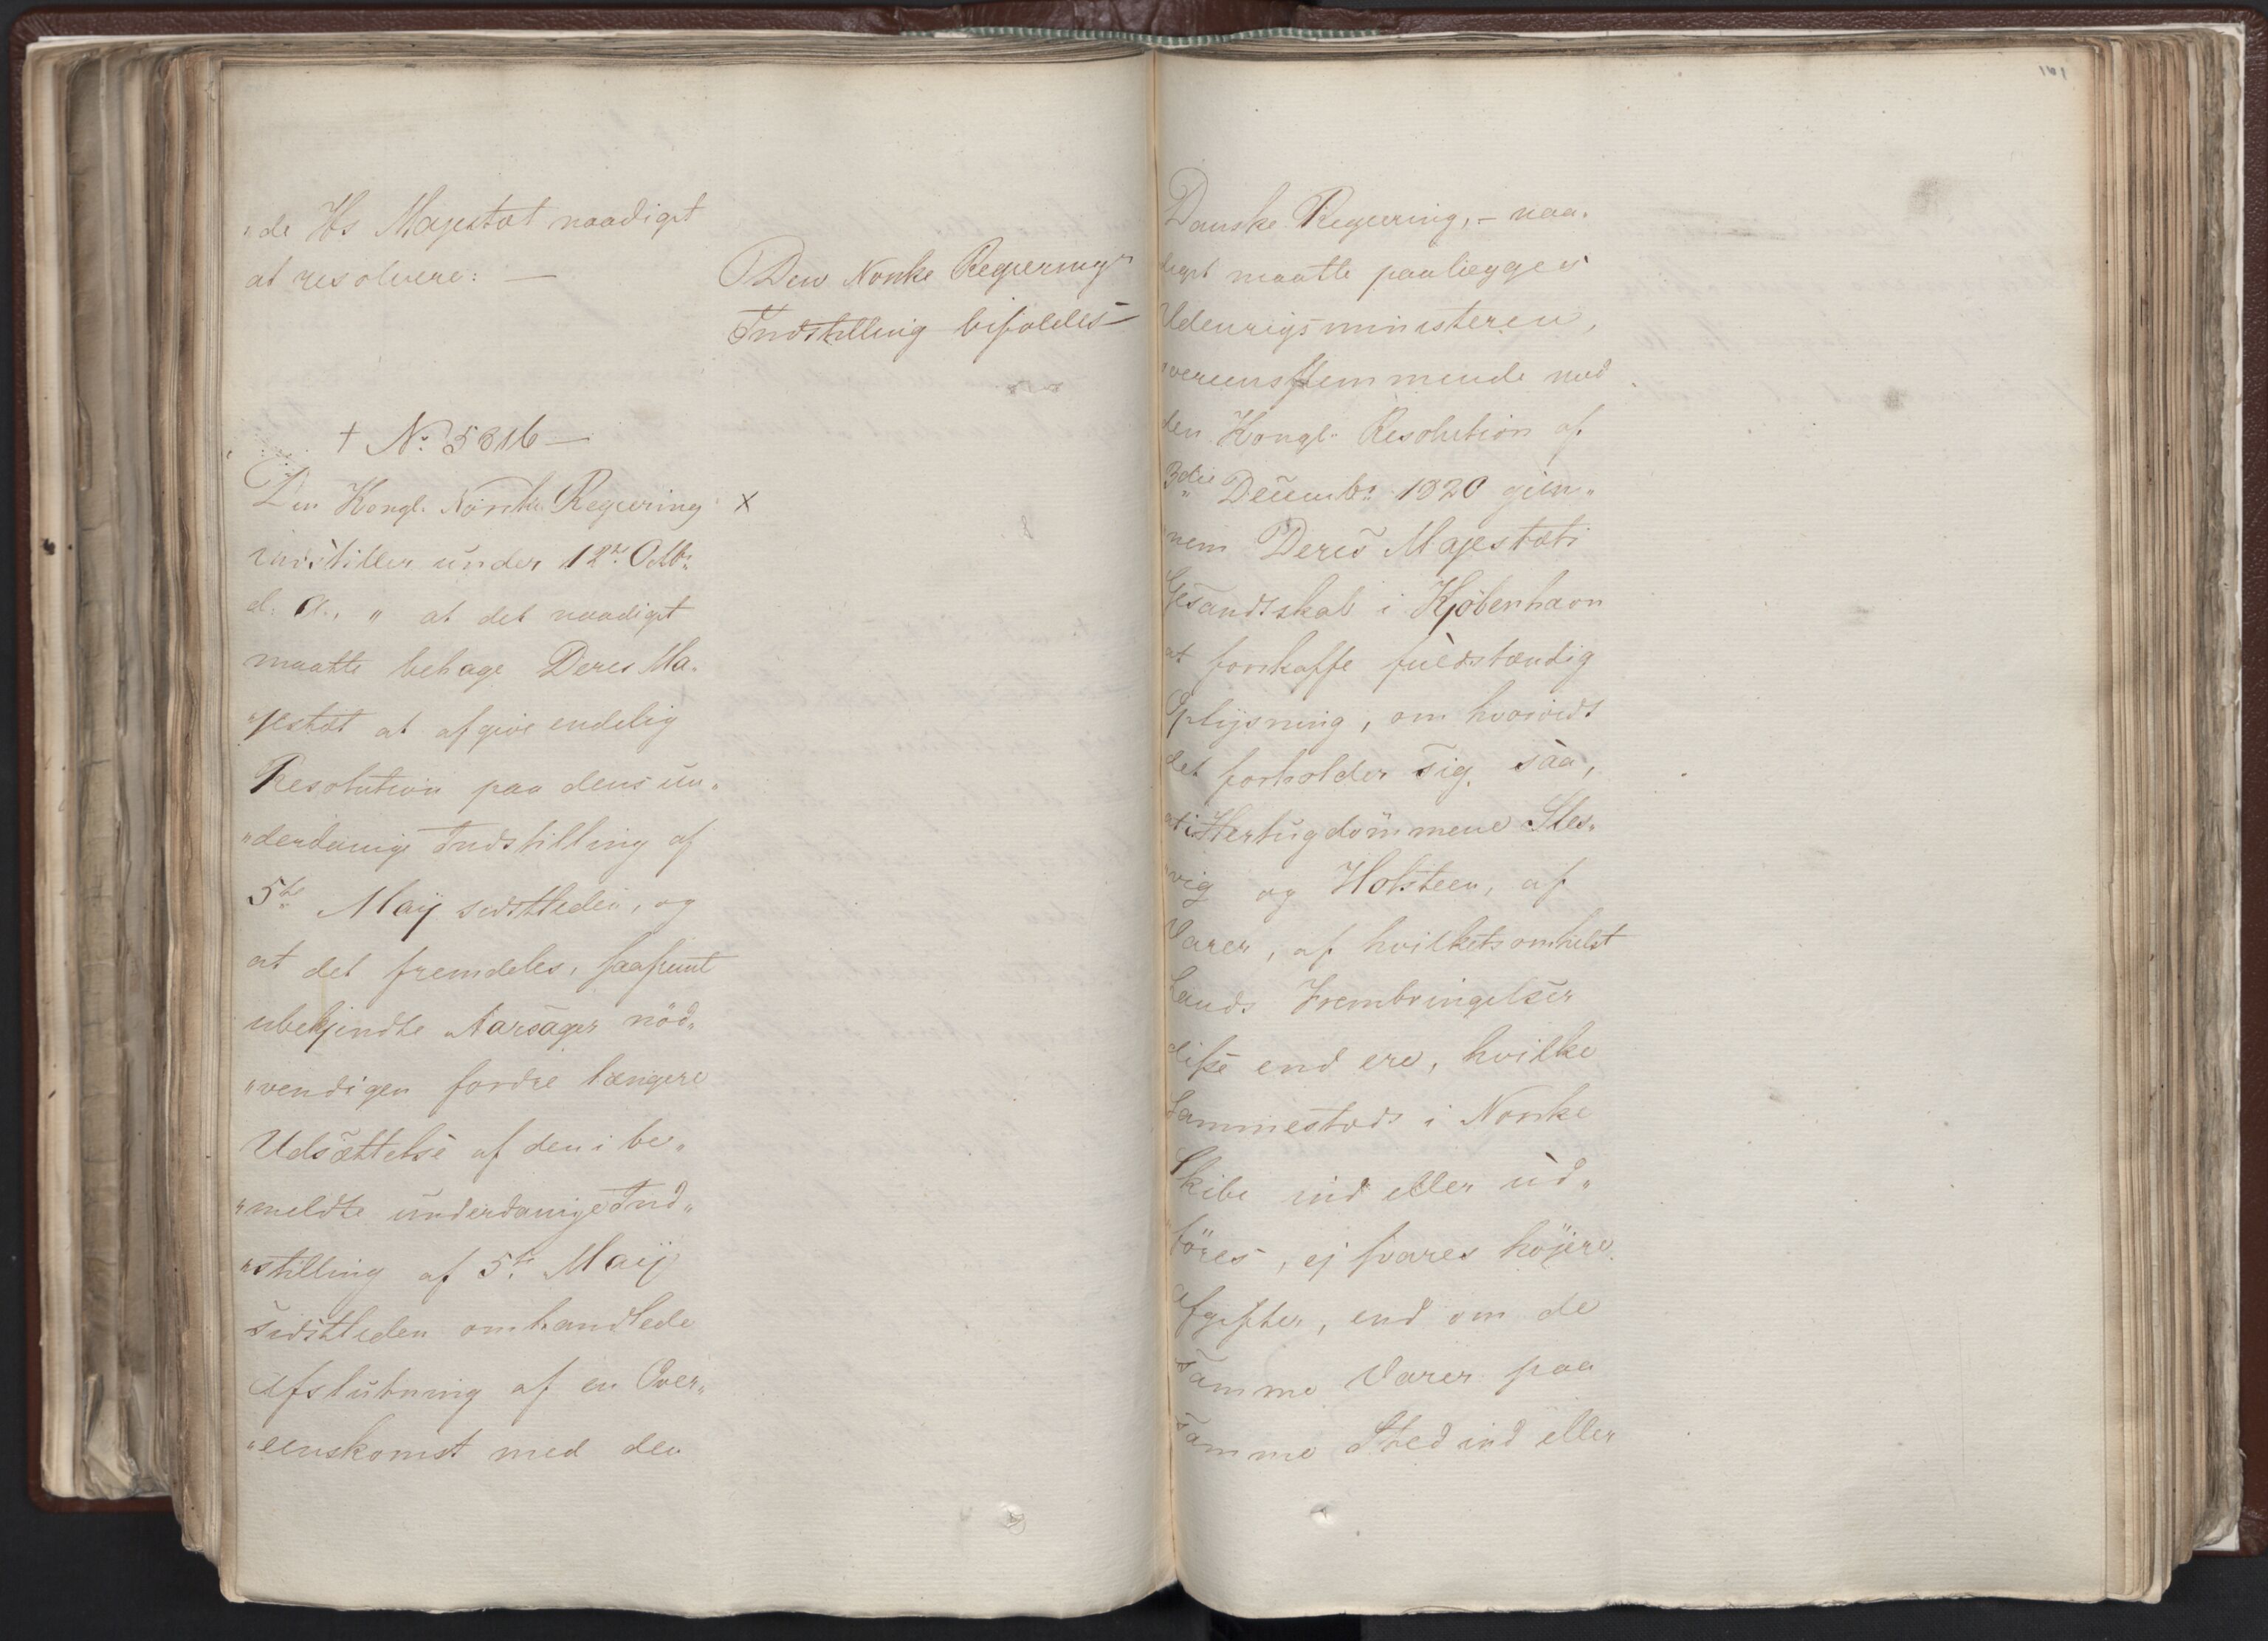 „de Hs Majestæt naadigst
at resolvere: —
Den Norske Regierings
Indstilling bifaldes
† No 5816 —
Den Kongl. Norske Regiering x
indstiller under 12te Octbr
d. A., „ at det naadigst
maatte behage Deres Ma„
„jestæt at afgive endelig
Resolution paa dens un„
„derdanige Indstilling af
5te Maij sidstleden, og
at det fremdeles, saafremt
ubekjendte Aarsager nöd„
„vendigen fordre længere
Udsættelse af den i be„
„meldte underdanige Ind„
„stilling af 5te Maij
sidstleden omhandlede
Afslutning af en Over„
„eenskomst med den
161
Danske Regiering, – naa„
digst maatte paalægges
Udenrigsministeren,
overeensstemmende med
den Kongl. Resolution af
3die Decembr 1820 gjen„
„nem Deres Majestæts
Gesandtskab i Kjöbenhavn
at forskaffe fuldstændig
Oplijsning, om hvorvidt
det forholder sig saa,
at i Hertugdömmene Sles„
„vig og Holsteen, af
Varer, af hvilketsomhelst
Lands Frembringelser
disse end ere, hvilke
sammestæds i Norske
Skibe ind eller ud„
„föres, ej svares höjere
Afgifter, end om de
samme Varer paa
samme Sted ind eller